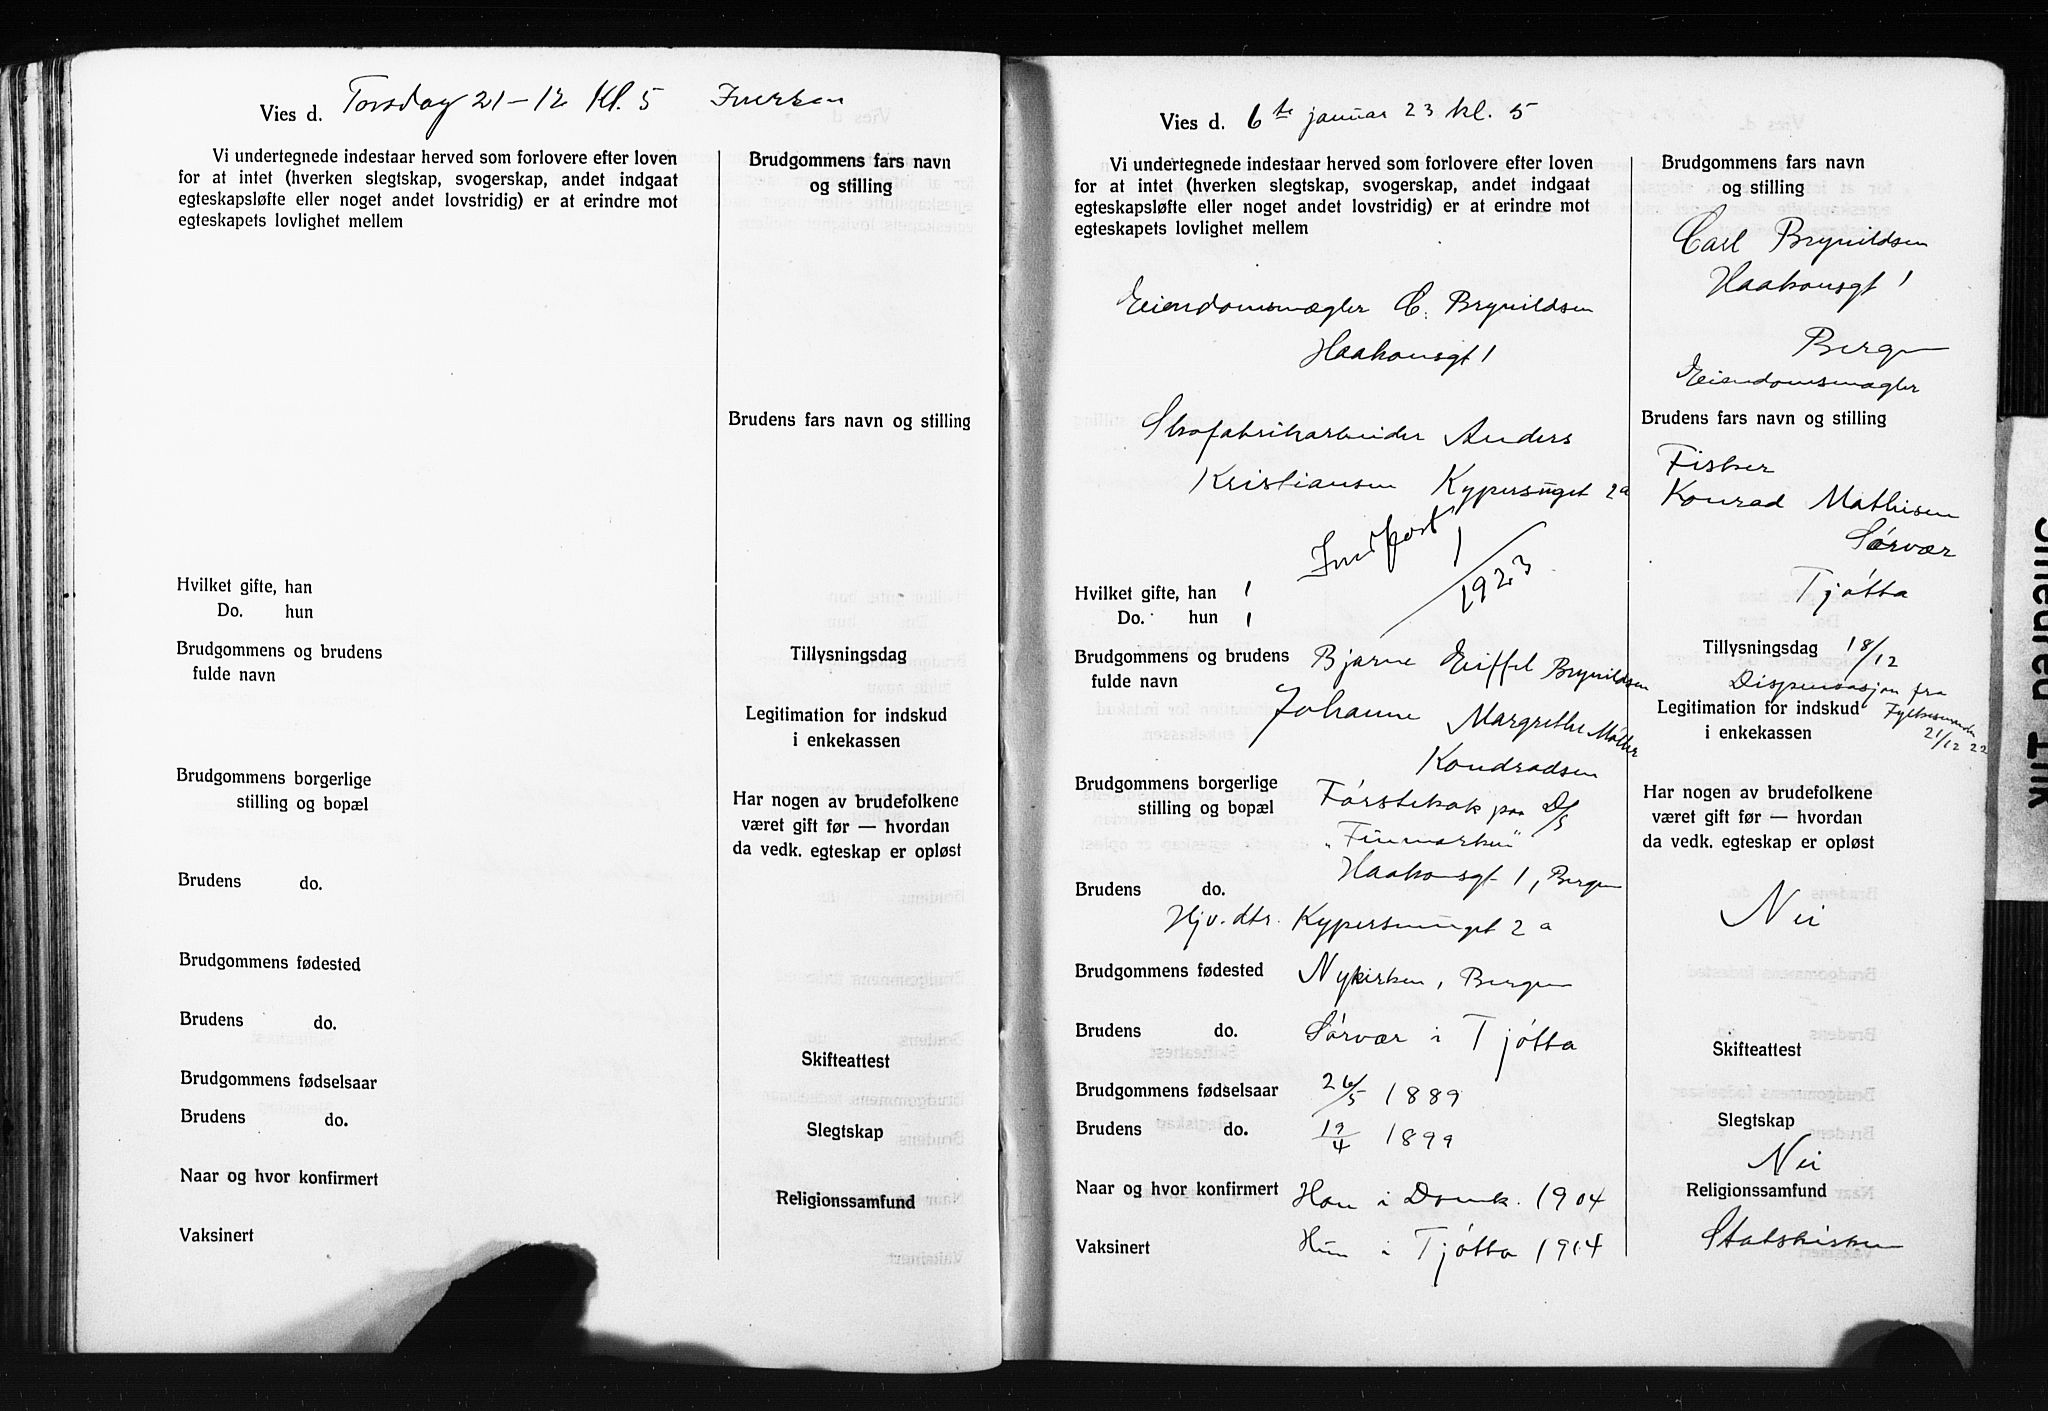 Vies d. Torsdag 21-12 Kl. 5
Vi undertegnede indestaar herved som forlovere efter loven
for at intet (hverken slegtskap, svogerskap, andet indgaat
egteskapsløfte eller noget andet lovstridig) er at erindre mot
egteskapets lovlighet mellem
Brudgommens fars navn
og stilling
Brudens fars navn og stilling
Hvilket gifte, han
Do. hun
Brudgommens og brudens
fulde navn
Tillysningsdag
Legitimation for indskud
i enkekassen
Brudgommens borgerlige
stilling og bopæl
Har nogen av brudefolkene
været gift før — hvordan
da vedk. egteskap er opløst
Brudens do.
Brudgommens fødested
Brudens do.
Skifteattest
Brudgommens fødselsaar
Brudens do.
Slegtskap
Naar og hvor konfirmert
Religionssamfund
Vaksinert
Vies d. 6te januar 23 kl. 5
Vi undertegnede indestaar herved som forlovere efter loven
for at intet (hverken slegtskap, svogerskap, andet indgaat
egteskapsløfte eller noget andet lovstridig) er at erindre mot
egteskapets lovlighet mellem
Brudgommens fars navn
og stilling
Carl Brynildsen
Haakonsgt 1
Bergen
Eiendomsmægler
Eiendomsmægler C. Brynildsen
Haakonsgt 1
Skofabrikarbeider Anders
Kristiansen Kypersmuget 2a
Brudens fars navn og stilling
Fisker
Konrad Mathisen
Sørvær
Tjøtta
Indført 1/1923
Hvilket gifte, han 1
Do. hun 1
Brudgommens og brudens Bjarne Eiffel Brynildsen
fulde navn Johanne Margrethe Møller
Kondradsen
Tillysningsdag 18/12
Dispensasjon fra
Fylkesmanden
21/12 22
Legitimation for indskud
i enkekassen
Brudgommens borgerlige Førstekok paa D/S
stilling og bopæl "Finmarken"
Haakonsgt 1, Bergen
Har nogen av brudefolkene
været gift før — hvordan
da vedk. egteskap er opløst
Nei
Brudens do.
Hjv. dtr. Kypersmuget 2 a
Brudgommens fødested Nykirken, Bergen
Brudens do. Sørvær i Tjøtta
Skifteattest
Brudgommens fødselsaar 26/5 1889
Brudens do. 19/4 1899
Slegtskap
Nei
Naar og hvor konfirmert Han i Domk. 1904
Religionssamfund
Statskirken
Vaksinert Hun i Tjøtta 1914